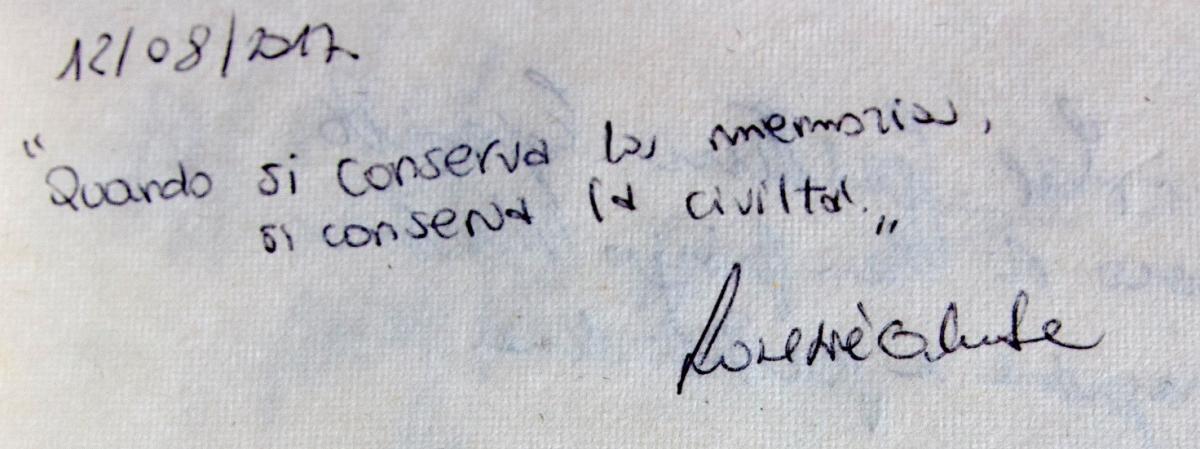 12/08/2017
"Quando si conserva la memoria,
si conserva la civiltà."